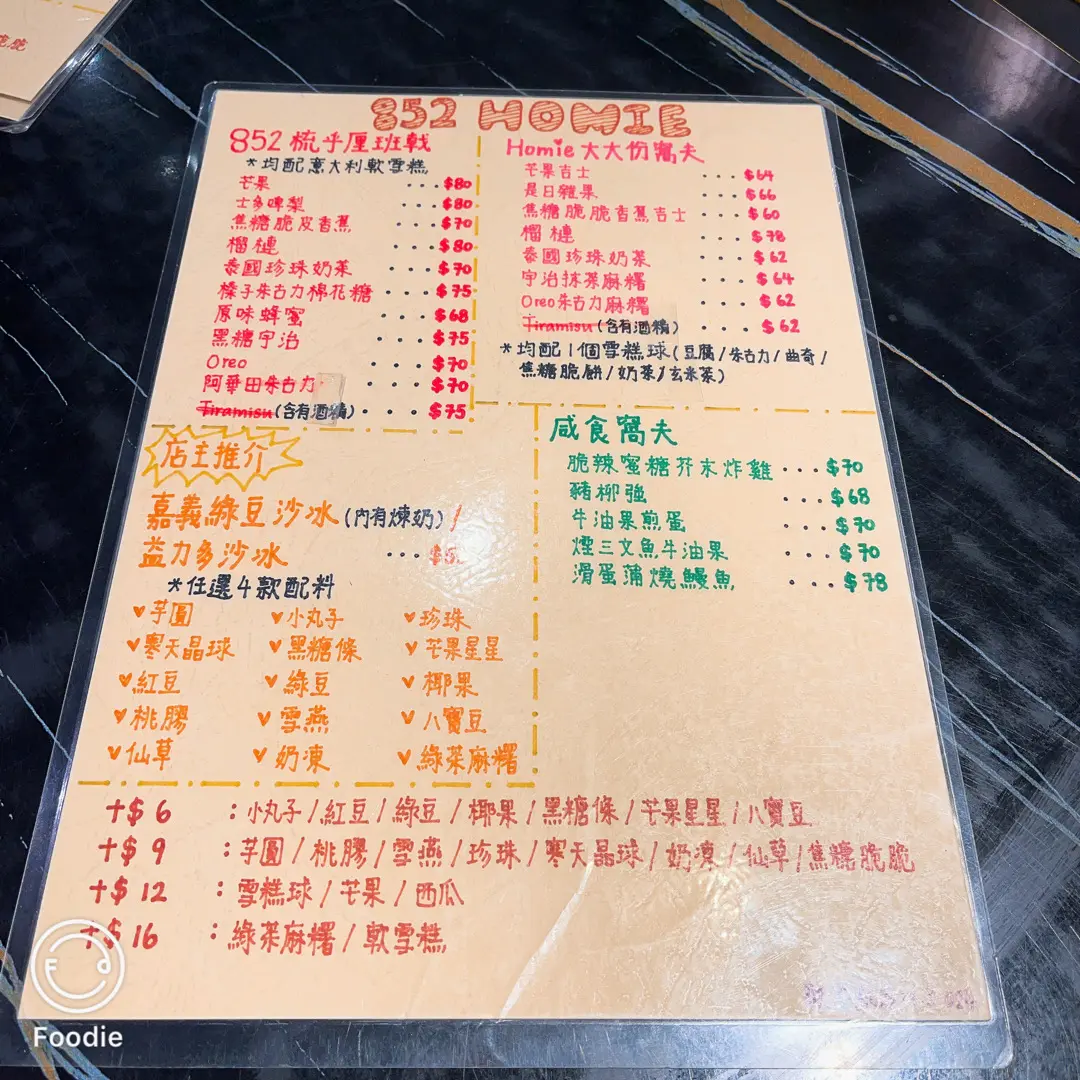 脆脆
852 HOMIE
852 梳乎厘班戟
*均配意大利軟雪糕
芒果 ... $80
士多啤梨 ... $80
焦糖脆皮香蕉 ... $70
榴槤 ... $80
泰國珍珠奶茶 ... $70
榛子朱古力棉花糖 ... $75
原味蜂蜜 ... $68
黑糖宇治 ... $75
Oreo ... $70
阿華田朱古力 ... $70
Tiramisu (含有酒精) .... $75
Homie 大大份窩夫
芒果吉士 ... $64
是日雜果 ... $66
焦糖脆脆香蕉吉士 ... $60
榴槤 ... $78
泰國珍珠奶茶 ... $62
宇治抹茶麻糬 ... $64
Oreo朱古力麻糬 ... $62
Tiramisu (含有酒精) .... $62
*均配1個雪糕球(豆腐/朱古力/曲奇/
焦糖脆餅/奶茶/玄米茶)
店主推介
嘉義綠豆沙冰(內有煉奶)
益力多沙冰 ...
*任選4款配料
♥芋圓 ♥小丸子 ♥珍珠
♥寒天晶球 ♥黑糖條 ♥芒果星星
♥紅豆 ♥綠豆 ♥椰果
♥桃膠 ♥雪燕 ♥八寶豆
♥仙草 ♥奶凍 ♥綠茶麻糬
咸食窩夫
脆辣蜜糖芥末炸雞 ... $70
豬柳強 ... $68
牛油果煎蛋 ... $70
煙三文魚牛油果 ... $70
滑蛋蒲燒鰻魚 ... $78
+$6 :小丸子/紅豆/綠豆/椰果/黑糖條/芒果星星/八寶豆
+$9 :芋圓/桃膠/雪燕/珍珠/寒天晶球/奶凍/仙草/焦糖脆脆
+$12 :雪糕球/芒果/西瓜
+$16 :綠茶麻糬/軟雪糕
Foodie